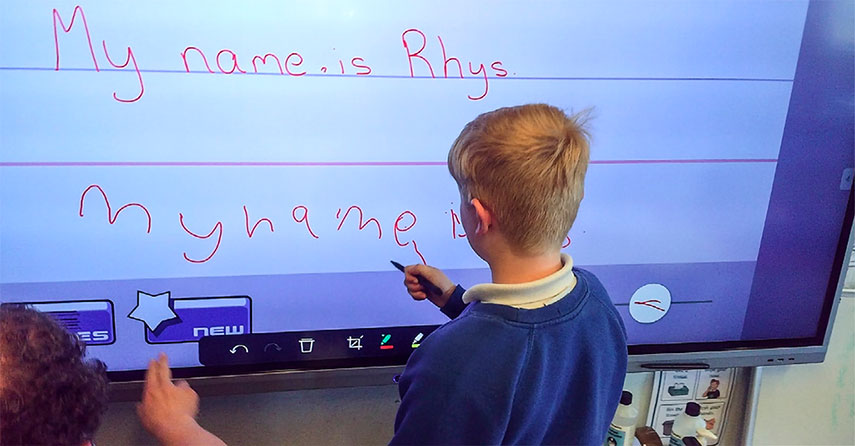 My name is Rhys.
My name
NEW